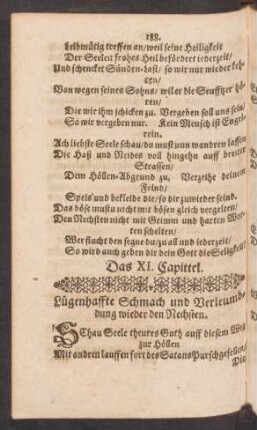 188.
Leibmütig treffen an/weil seine Heiligkeit
Der Seelen frohes Heil befördert iederzeit/
Und schencket Sünden-loß/ so wir nur wieder keh-
ren/
Von wegen seines Sohns/ wil er die Seufftzer hö-
ren/
Die wir ihm schicken zu. Vergeben soll uns sein/
So wir vergeben nur. Kein Mensch ist Engel-
rein.
Ach liebste Seele schau/du must uun wandren lassen
Die Haß und Neides voll hingehn auff breiter
Strassen/
Dem Höllen-Abgrund zu. Verzeihe deinem
Feind/
Speis und bekleide die/ so dir zuwieder seind.
Das böse mustu nicht mit bösen gleich vergelten/
Den Nechsten nicht mit Grimm und harten Wor-
ten schelten/
Wer flucht den segne du/zu all und iederzeit/
So wird auch geben dir dein Gott die Seligkeit.
Das XI. Capittel.
Lügenhaffte Schmach und Verleumb-
dung wieder den Nechsten.
SChau Seele theures Guth auff diesem Weg
zur Höllen
Mit andern lauffen fort des Satans Purschgesellen/
Die